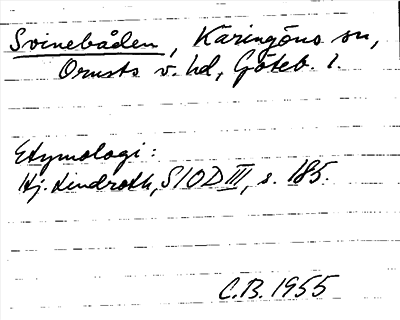 Svinebåden, Käringöns sn,
Orusts v. hd, Göteb. l.
Etymologi:
Hj. Lindroth, SIOD III, s. 185.
C.B. 1955